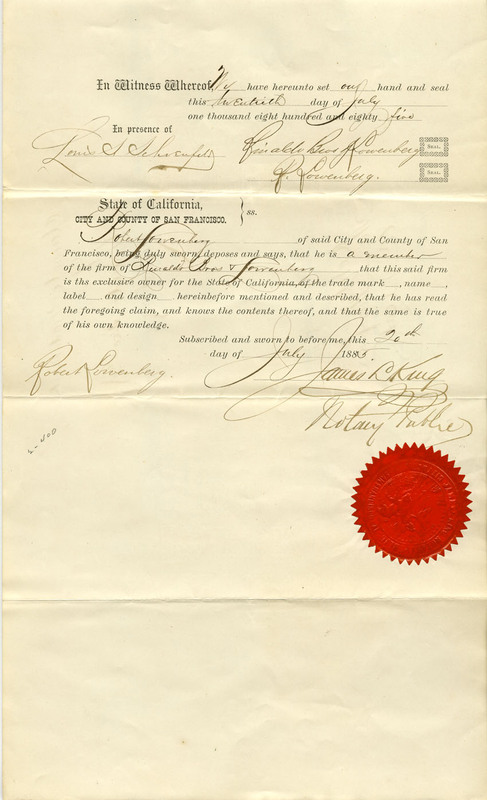 In Witness Whereof We have hereunto set our hand and seal
this twentieth day of July
one thousand eight hundred and eighty five
In presence of
Rinaldo Bros & Lowenberg Seal.
R. Lowenberg. Seal.
State of California,
CITY AND COUNTY OF SAN FRANCISCO. } ss.
Robert Lowenberg of said City and County of San
Francisco, being duly sworn, deposes and says, that he is a member
of the firm of Rinaldo Bros & Lowenberg that this said firm
is ths exclusive owner for the State of California, of the trade mark , name ,
label and design hereinbefore mentioned and described, that he has read
the foregoing claim, and knows the contents thereof, and that the same is true
of his own knowledge.
Subscribed and sworn to before me, this 20th
day of July 1885.
Robert Lowenberg.
James L. King
Notary Public